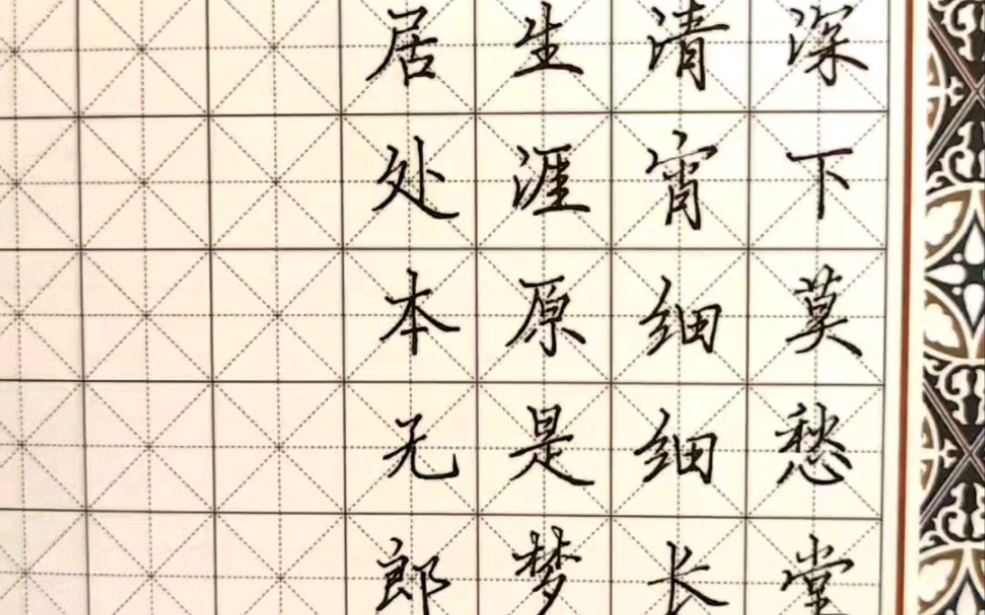 深下莫愁堂
清宵细细长
生涯原是梦
居处本无郎